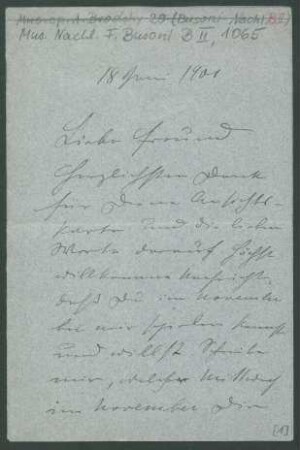 Mus. ep. A. Brodsky 29 (Busoni-Nachl. B II)
Mus. Nachl. F. Busoni B II, 1065
18 Juni 1901
Lieber Freund
Herzlichsten Dank
für Deine Ansichts-
karte und die lieben
Worte darauf. Höchst
willkommene Nachricht,
daß Du im November
bei mir spielen kannst
und willst. Schreibe
mir, welcher Mittwoch
im November Dir
[1]